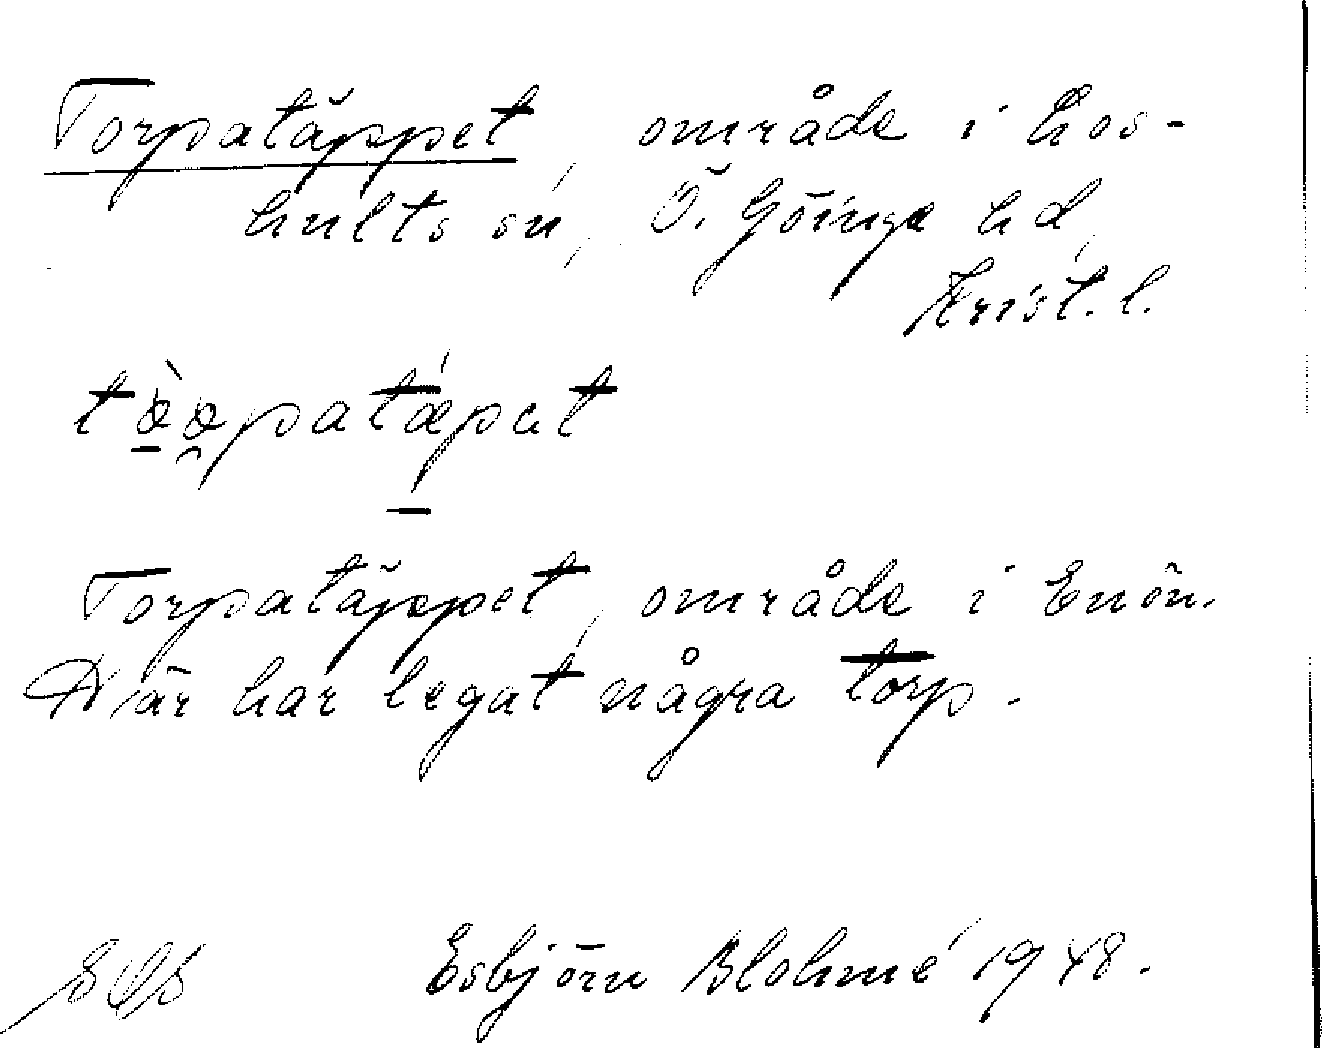 Torpatäppet, område i Loshults sn, Ö. Göinge hd,
Krist. l.
Torpatäppet, område i Enön.
Där har legat några torp.
Esbjörn Blohmé 1948.